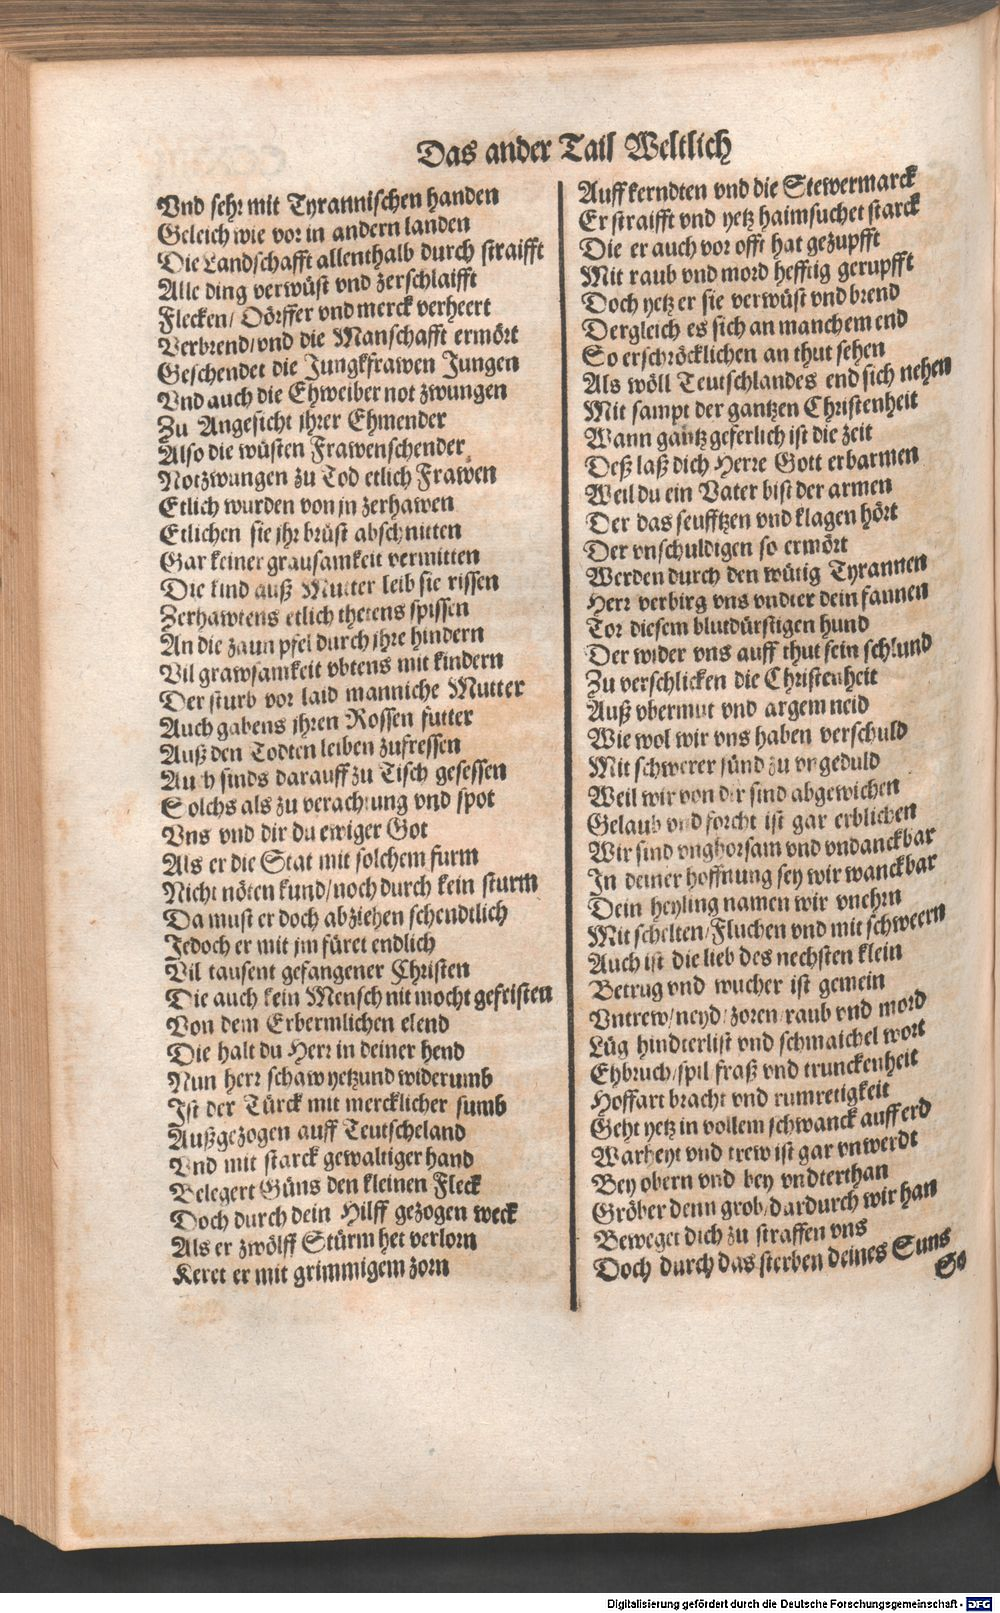 Das ander Tail Weltlich
Vnd sehr mit Tyrannischen handen
Geleich wie vor in andern landen
Die Landschafft allenthalb durch straifft
Alle ding verwüst vnd zerschlaifft
Flecken/ Dörffer vnd merck verheert
Verbrend/vnd die Manschafft ermört
Geschendet die Jungkfrawen Jungen
Vnd auch die Ehweiber not zwungen
Zu Angesicht jhrer Ehmender
Also die wüsten Frawenschender
Notzwungen zu Tod etlich Frawen
Etlich wurden von jn zerhawen
Etlichen sie jhr brüst abschnitten
Gar keiner grausamkeit vermitten
Die kind auß Mutter leib sie rissen
Zerhawtens etlich thetens spissen
An die zaun pfel durch jhre hindern
Vil grawsamkeit vbtens mit kindern
Der sturb vor laid manniche Mutter
Auch gabens jhren Rossen futter
Auß den Todten leiben zufressen
Auch sinds darauff zu Tisch gesessen
Solchs als zu verachtung vnd spot
Vns vnd dir du ewiger Got
Als er die Stat mit solchem furm
Nicht nöten kund/noch durch kein sturm
Da must er doch abziehen schendtlich
Jedoch er mit jm füret endlich
Vil tausent gefangener Christen
Die auch kein Mensch nit mocht gefristen
Von dem Erbermlichen elend
Die halt du Herr in deiner hend
Nun herr schaw yetzund widerumb
Ist der Türck mit mercklicher sumb
Außgezogen auff Teutscheland
Vnd mit starck gewaltiger hand
Belegert Güns den kleinen Fleck
Doch durch dein Hilff gezogen weck
Als er zwölff Stürm het verlorn
Keret er mit grimmigem zorn
Auff kerndten vnd die Stewermarck
Er straifft vnd yetz haimsuchet starck
Die er auch vor offt hat gezupfft
Mit raub vnd mord hefftig gerupfft
Doch yetz er sie verwüst vnd brend
Dergleich es sich an manchem end
So erschröcklichen an thut sehen
Als wöll Teutschlandes end sich nehen
Mit sampt der gantzen Christenheit
Wann gantz geferlich ist die zeit
Deß laß dich Herre Gott erbarmen
Weil du ein Vater bist der armen
Der das seufftzen vnd klagen hört
Der vnschuldigen so ermört
Werden durch den wütig Tyrannen
Herr verbirg vns vndter dein fannen
Vor diesem blutdürstigen hund
Der wider vns auff thut sein schlund
Zu verschlicken die Christenheit
Auß vbermut vnd argem neid
Wie wol wir vns haben verschuld
Mit schwerer sünd zu vngeduld
Weil wir von dir sind abgewichen
Gelaub vnd forcht ist gar erblichen
Wir sind vnghorsam vnd vndanckbar
In deiner hoffnung sey wir wanckbar
Dein heyling namen wir vnehrn
Mit schelten/Fluchen vnd mit schweern
Auch ist die lieb des nechsten klein
Betrug vnd wucher ist gemein
Vntrew/neyd/zoren/raub vnd mord
Lüg hindterlist vnd schmaichel wort
Ehbruch/spil fraß vnd trunckenheit
Hoffart bracht vnd rumretigkeit
Geht yetz in vollem schwanck auff erd
Warheyt vnd trew ist gar vnwerdt
Bey obern vnd bey vndterthan
Gröber denn grob/dardurch wir han
Beweget dich zu straffen vns
Doch durch das sterben deines Suns
So
Digitalisierung gefördert durch die Deutsche Forschungsgemeinschaft - DFG